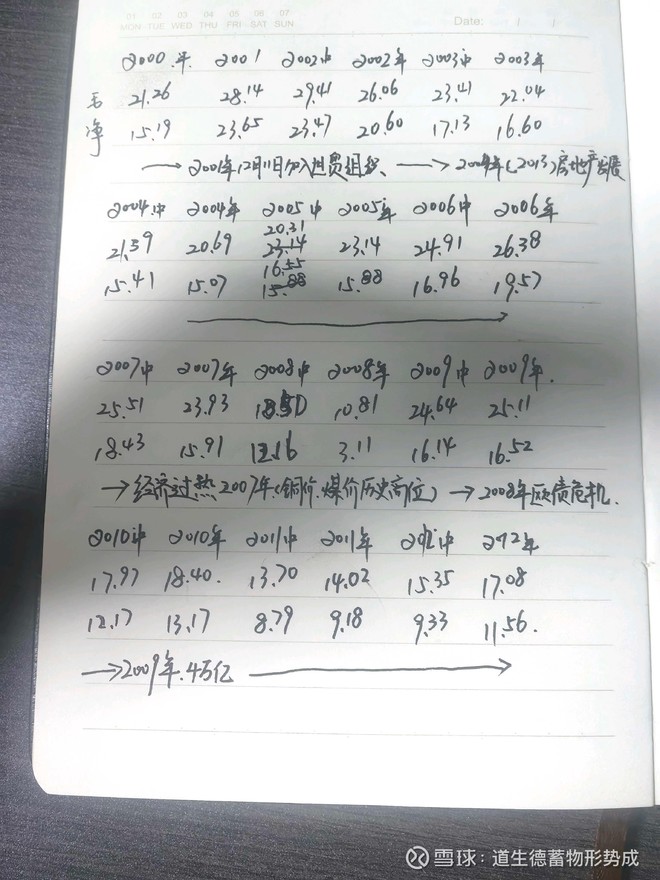 01 02 03 04 05 06 07
MON TUE WED THU FRI SAT SUN
Date: / /
2000年 2001 2002中 2002年 2003中 2003年
毛 21.26 28.14 29.41 26.06 23.41 22.04
净 15.19 23.65 23.47 20.60 17.13 16.60
→ 2001年12月11日加入世贸组织 → 2004年(2013)房地产发展
2004中 2004年 2005中 2005年 2006中 2006年
20.31
21.59 20.69 23.14 23.14 24.91 26.38
16.55
15.41 15.07 15.88 15.88 16.96 19.57
2007中 2007年 2008中 2008年 2009中 2009年.
25.51 23.93 10.81 24.64 25.11
18.43 15.91 12.16 3.11 16.14 16.52
→ 经济过热2007年(铜价.煤价历史高位) → 2008年欧债危机.
2010中 2010年 2011中 2011年 2012中 2012年
17.97 18.40. 13.70 14.02 15.35 17.08
12.17 13.17 8.79 9.18 9.33 11.56.
→2009年.4万亿
雪球:道生德蓄物形势成